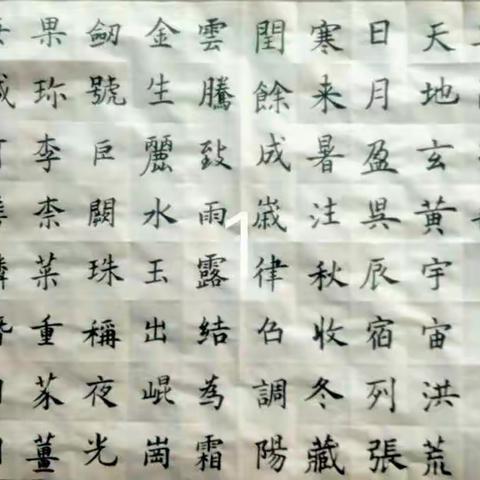 天地玄黃宇宙洪荒
日月盈昃辰宿列張
寒来暑往秋收冬藏
閏餘成歲律召調陽
雲騰致雨露結為霜
金生麗水玉出崐崗
劒號巨闕珠稱夜光
果珎李柰菜重芥薑
1